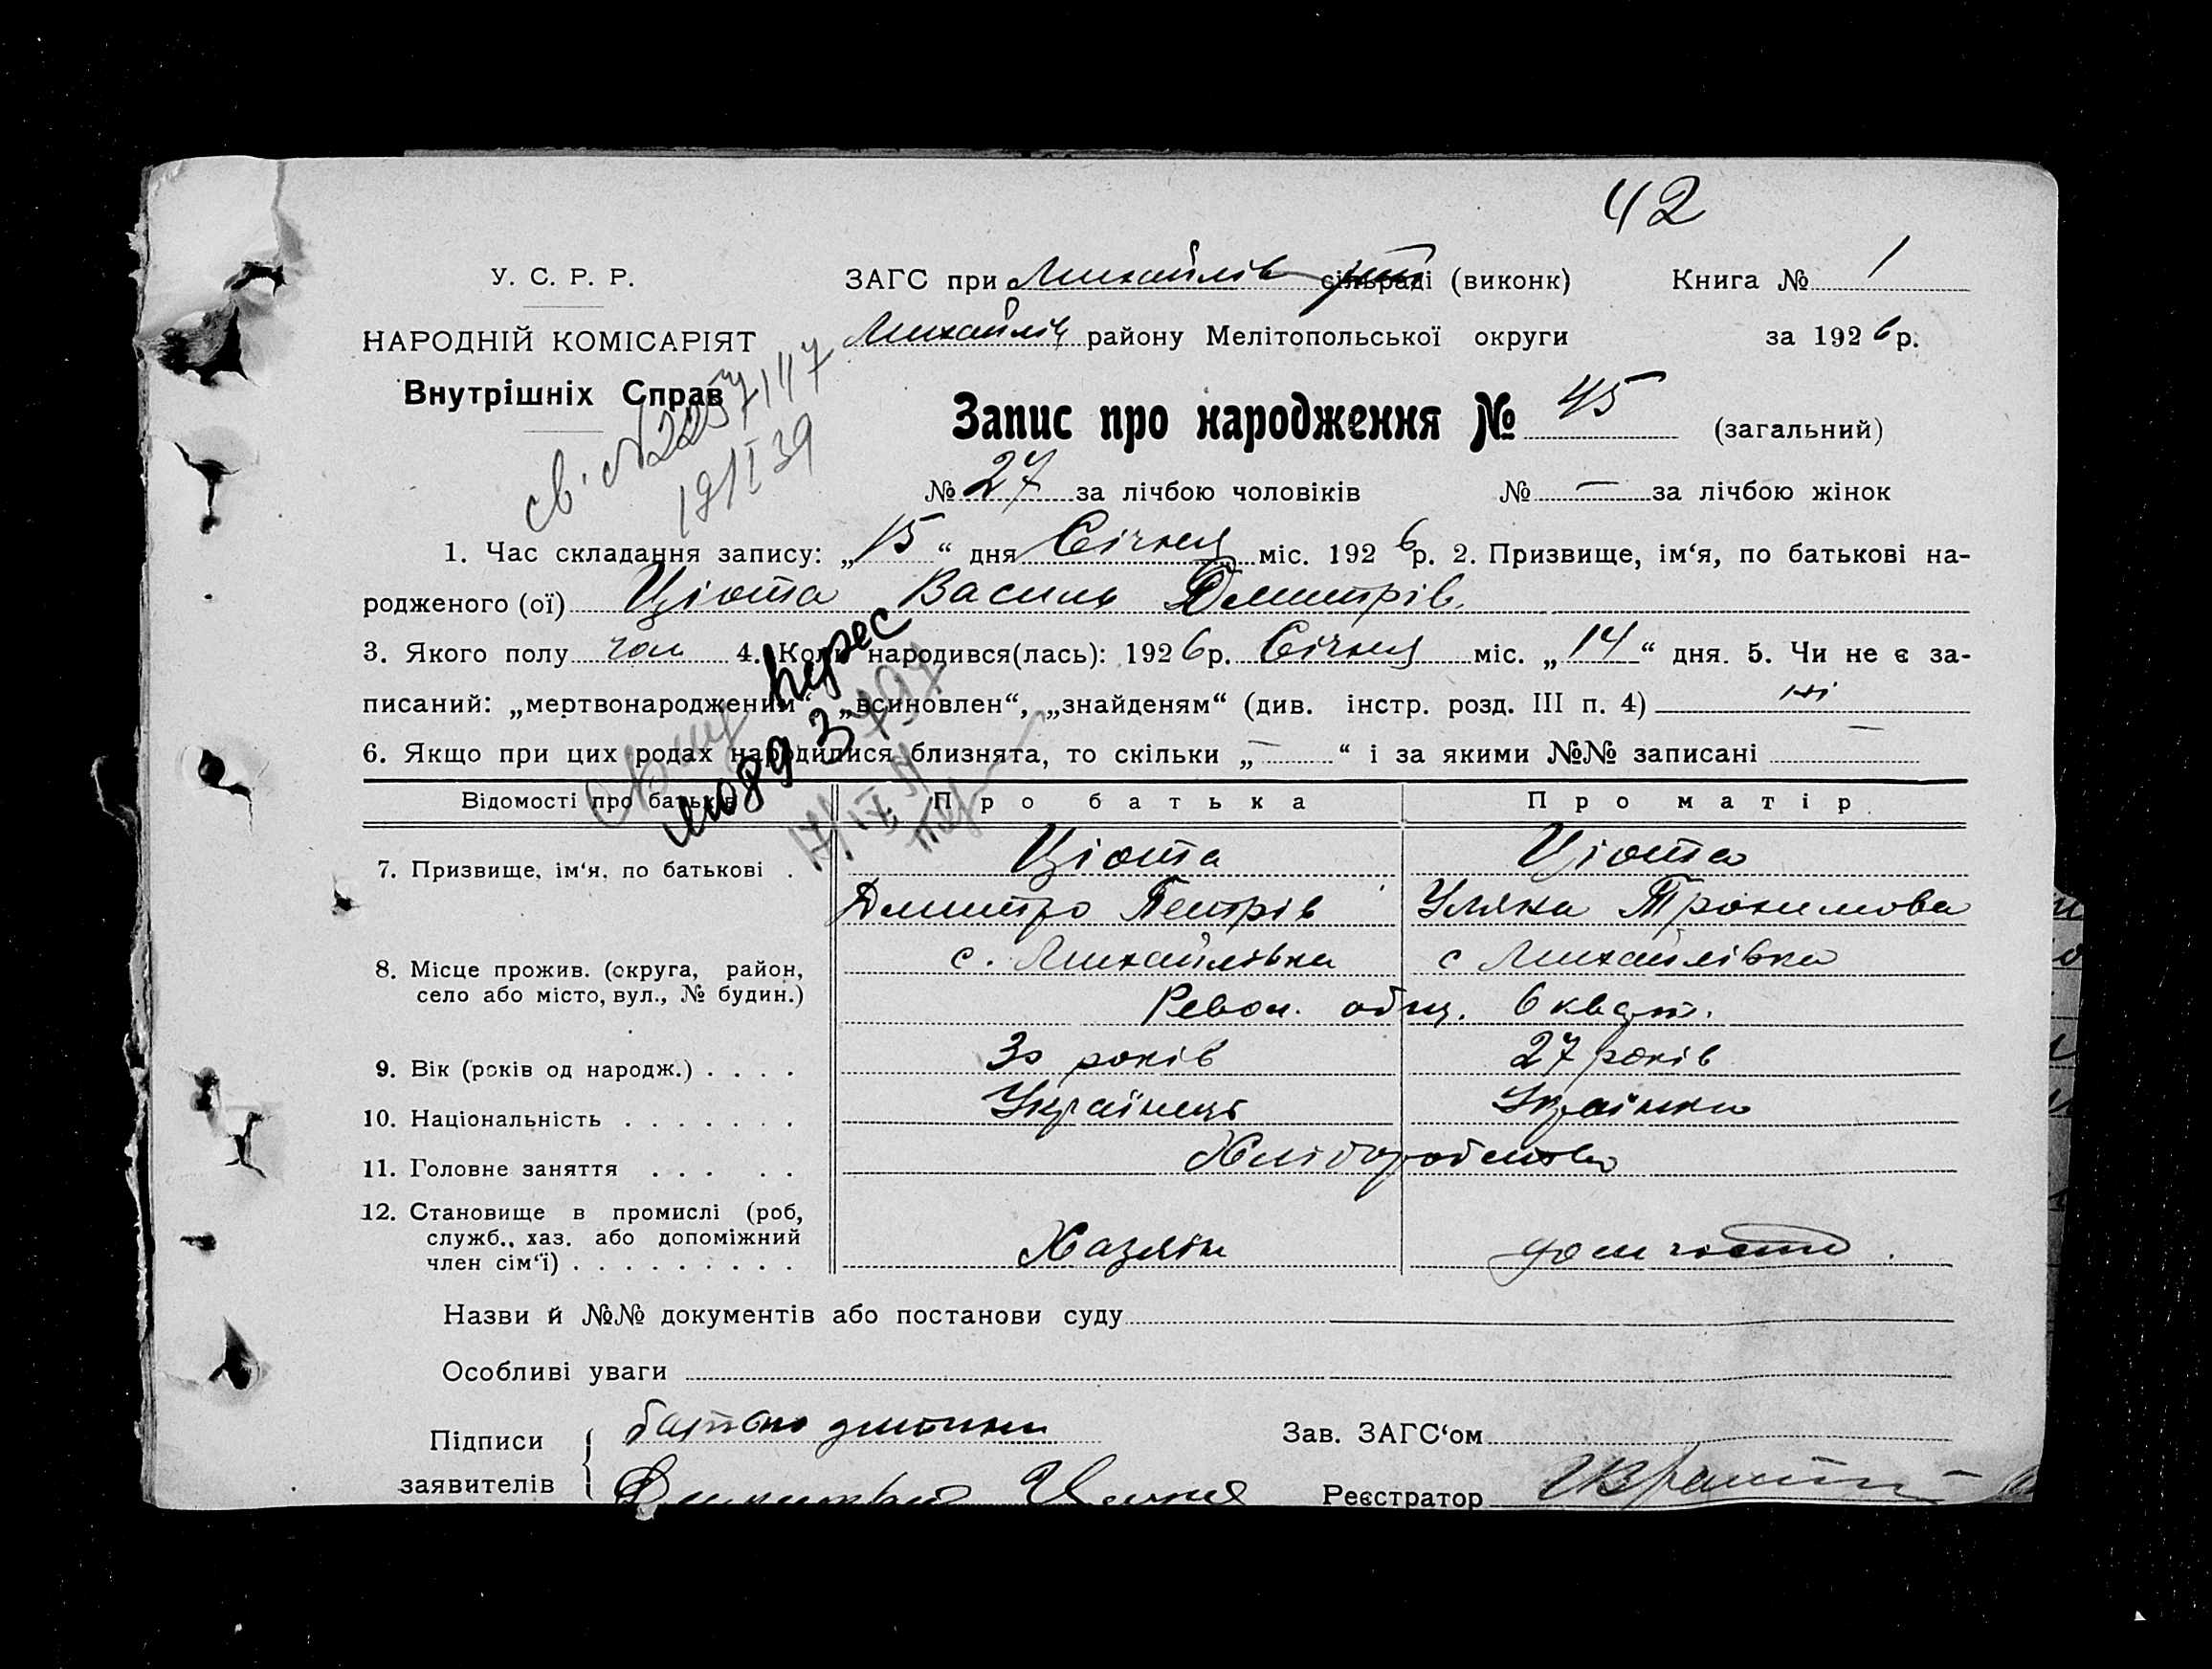 42
У. С. Р. Р.
ЗАГС при Михайлів сільраді (виконк)
Книга № 1
НАРОДНІЙ КОМІСАРІЯТ
Михайлів району Мелітопольської округи
за 1926 р.
Внутрішніх Справ
св. №
19/I 39
Запис про народження № 45 (загальний)
№ 27 за лічбою чоловіків № — за лічбою жінок
1. Час складання запису: „15“ дня Січня міс. 1926 р. 2. Призвище, ім‘я, по батькові на-
родженого (ої) Ціота Василь Дмитрів.
3. Якого полу чол 4. Коли народився(лась): 1926 р. Січня міс. „14“ дня. 5. Чи не є за-
писаний: „мертвонароджений“ „всиновлен“, „знайденям“ (див. інстр. розд. III п. 4) ні
6. Якщо при цих родах народилися близнята, то скільки „—“ і за якими №№ записані —
Відомості про батьків Про батька Про матір
7. Призвище, ім‘я, по батькові . Ціота Ціота
Дмитро Петрів Уляна Трохимова
8. Місце прожив. (округа, район, с. Михайлівка с Михайлівка
село або місто, вул., № будин.) Револ. общ. 6 кварт.
9. Вік (років од народж.) . . . . 30 років 27 років
10. Національність . . . . . . . Українець Українка
11. Головне заняття . . . . . Хліборобство
12. Становище в промислі (роб,
служб., хаз. або допоміжний
член сім‘ї) . . . . . . . . . Хазяїн
Назви й №№ документів або постанови суду
Особливі уваги
Підписи
заявителів
батько дитини
Зав. ЗАГС‘ом
Реєстратор